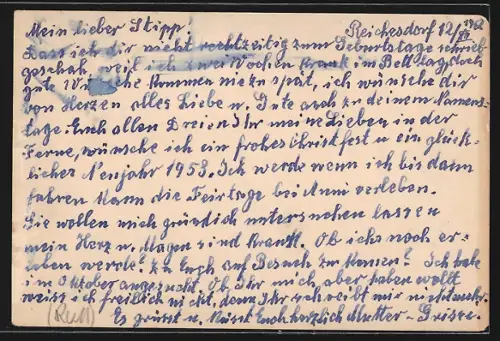 Mein lieber Stipp! Reichesdorf 12/XII 1952
Dass ich dir nicht rechtzeitig zum Geburtstage schrieb
geschah, weil ich zwei Wochen krank im Bett lag, doch
gute Wünsche kommen nie zu spät, ich wünsche dir
von Herzen alles Liebe u. Gute auch zu deinem Namens-
tage. Euch allen Dreien Ihr meine Lieben in der
Ferne, wünsche ich ein frohes Christfest u ein glück-
liches Neujahr 1953. Ich werde wenn ich bis dann
fahren kann die Feirtage bei Anni verleben.
Sie wollen mich gründlich untersuchen lassen
mein Herz u. Magen sind krank. Ob ichs noch er-
leben werde? zu Euch auf Besuch zu komen? Ich habe
im Oktober angesucht. Ob Ihr mich aber haben wollt
weiss ich freilich nicht, denn Ihr schreibt mir nicht mehr.
Es grüsst u. küsst Euch herzlich Mutter-